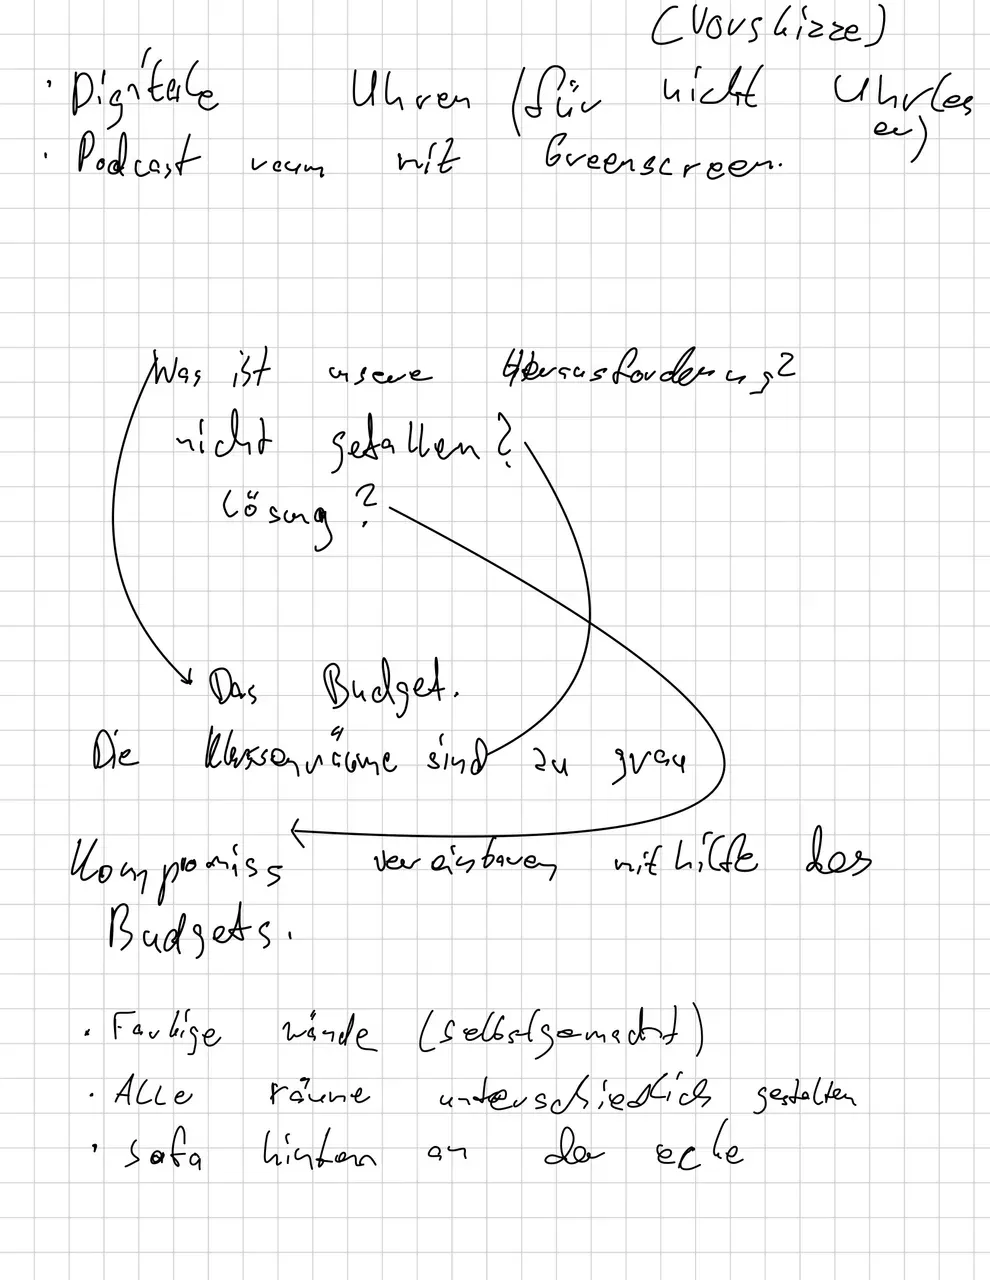 (Vorskizze)
· Dignitale Uhren (für nicht Uhrles
er)
· Podcast raum mit Greenscreen.
Was ist unsere Herausforderung?
nicht gefallen?
Lösung?
Das Budget.
Die Klassenräume sind zu grau
Kompromiss vereinbaren mithilfe des
Budgets.
· Farbige wände (selbstgemacht)
· ALLe räume unterschiedlich gestalten
· Sofa hinten an der ecke